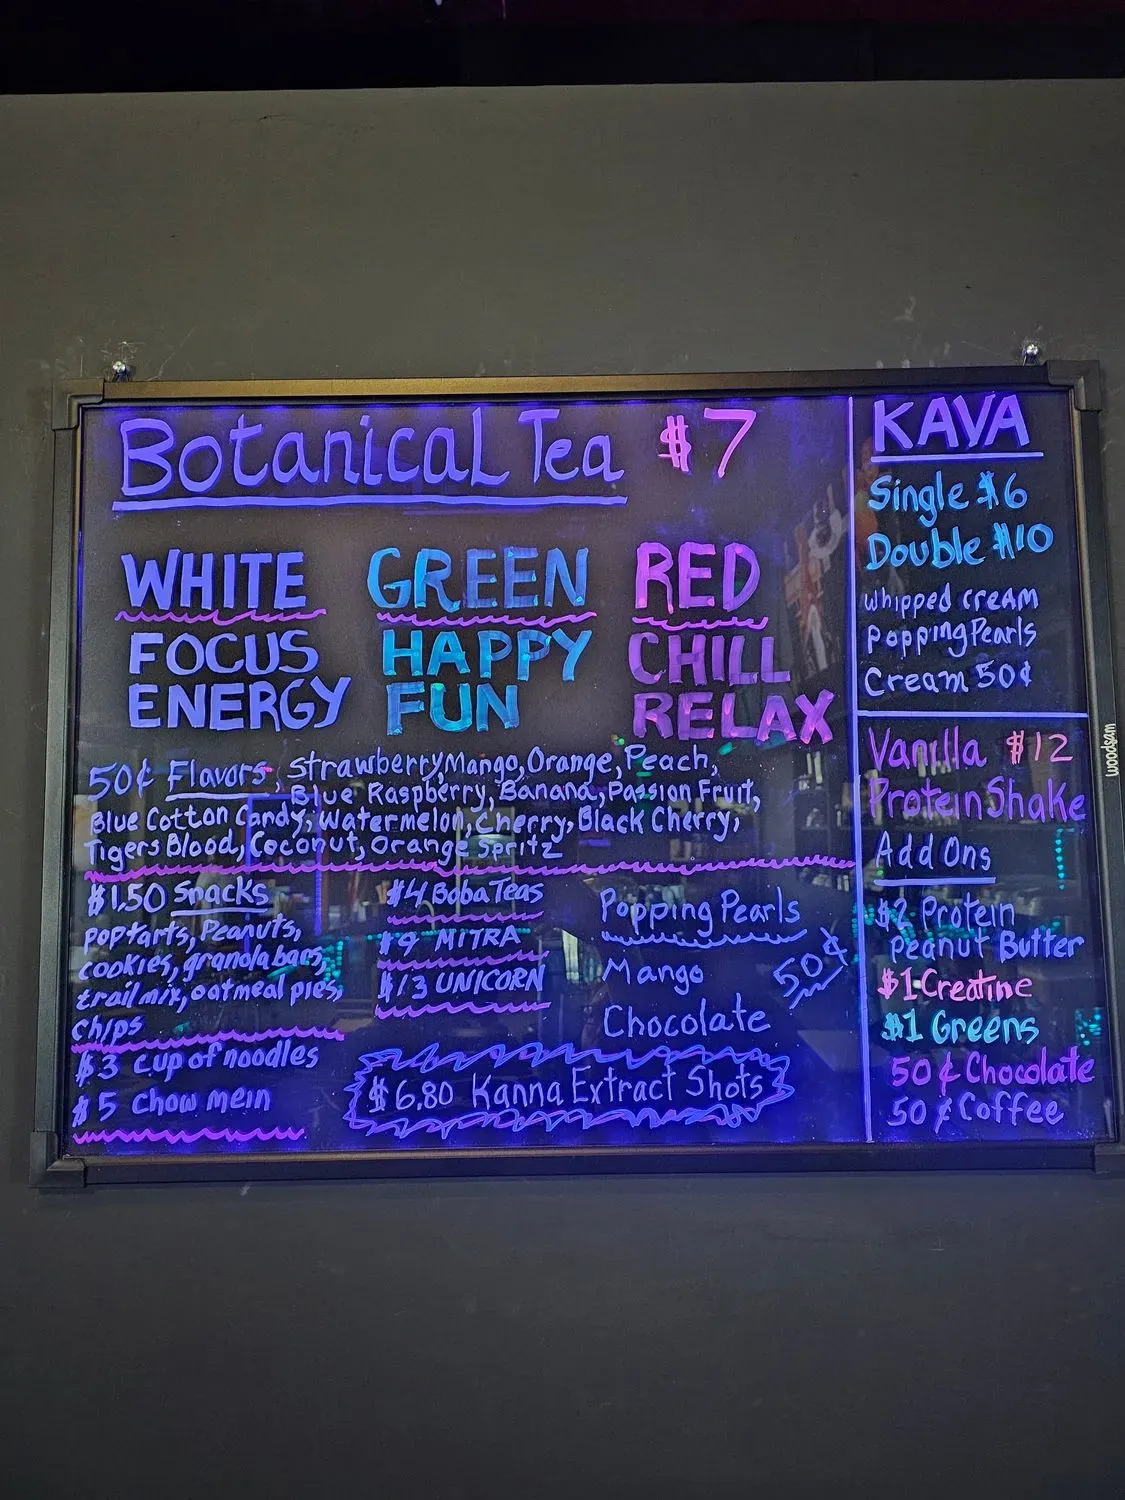 Botanical Tea $7
WHITE
FOCUS
ENERGY
GREEN
HAPPY
FUN
RED
CHILL
RELAX
50¢ Flavors, Strawberry, Mango, Orange, Peach,
Blue Raspberry, Banana, Passion Fruit,
Blue Cotton Candy, Watermelon, Cherry, Black Cherry,
Tigers Blood, Coconut, Orange Spritz
$1.50 Snacks
poptarts, Peanuts,
cookies, granola bars,
trail mix, oatmeal pies,
chips
$3 Cup of noodles
$5 Chow mein
$4 Boba Teas
$9 MITRA
$13 UNICORN
Popping Pearls
Mango
Chocolate
50¢
$6.80 Kanna Extract Shots
KAVA
Single $6
Double $10
Whipped cream
Popping Pearls
Cream 50¢
Vanilla $12
Protein Shake
Add Ons
$2 Protein
Peanut Butter
$1 Creatine
$1 Greens
50¢ Chocolate
50¢ Coffee
woodsam